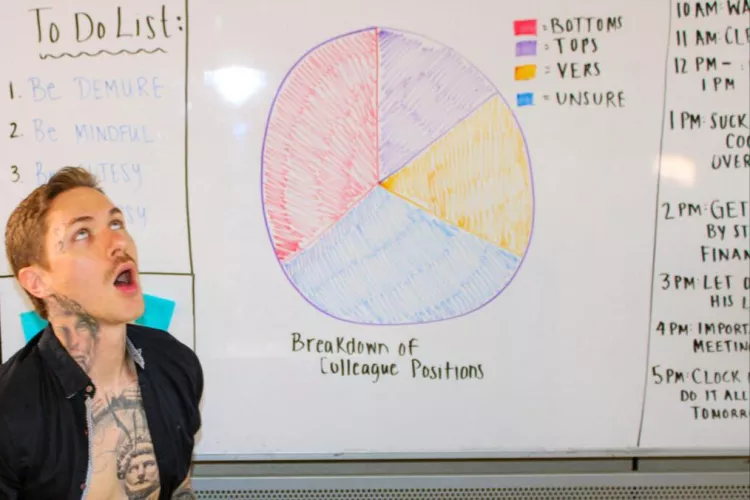 To Do List:
1. Be DEMURE
2. Be MINDFUL
3.
= BOTTOMS
= TOPS
= VERS
= UNSURE
Breakdown of
Colleague Positions
10 AM: WA
11 AM: CLE
12 PM -
1 PM
1 PM: SUCK
CO
OVER
2 PM: GET
BY ST
FINAN
3 PM: LET
HIS L
4 PM: IMPORT
MEETIN
5 PM: CLOCK
DO IT ALL
TOMORR